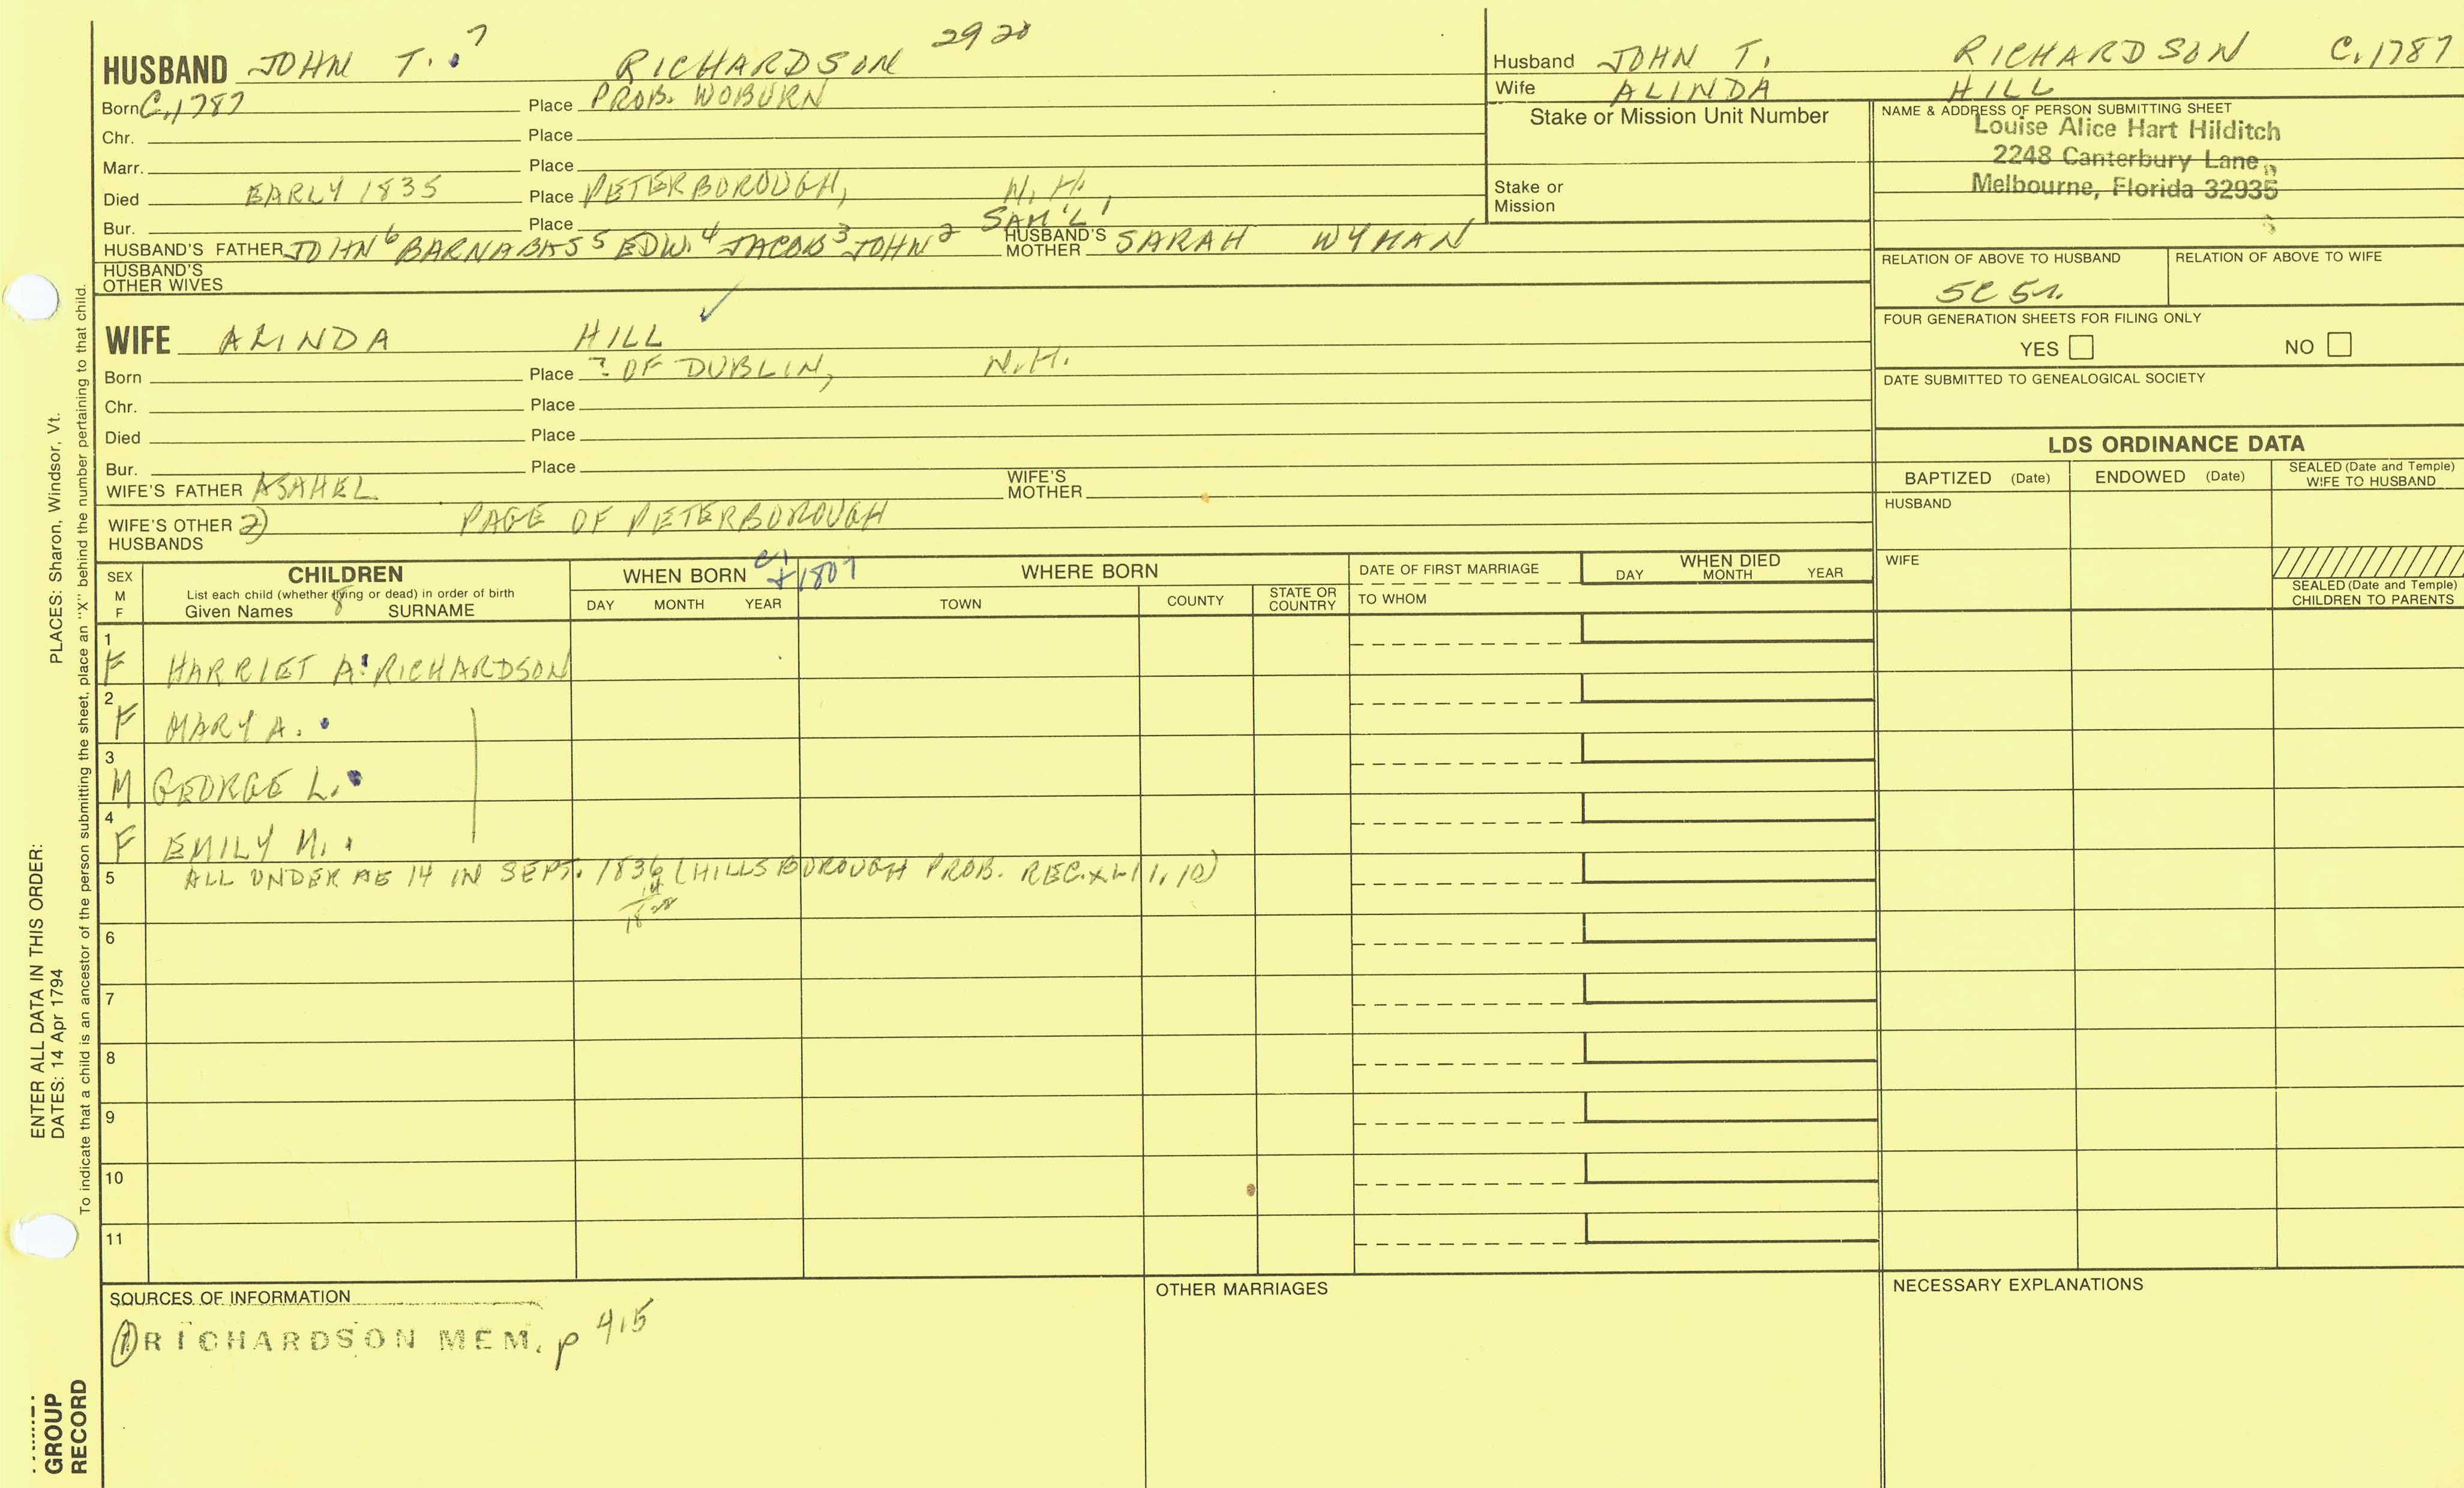 HUSBAND JOHN T. 7 RICHARDSON 2920
Born C. 1787 Place PROB. WOBURN
Chr. Place
Marr. Place
Died EARLY 1835 Place PETERBOROUGH, N.H.
Bur. Place
HUSBAND'S FATHER JOHN 6 BARNABAS 5 EDW. 4 JACOB 3 JOHN 2 SAM'L 1 HUSBAND'S MOTHER SARAH WYMAN
HUSBAND'S OTHER WIVES
WIFE ALINDA HILL ✓
Born Place ? OF DUBLIN, N.H.
Chr. Place
Died Place
Bur. Place
WIFE'S FATHER ASAHEL WIFE'S MOTHER
WIFE'S OTHER HUSBANDS 2) PAGE OF PETERBOROUGH
Husband JOHN T. RICHARDSON C. 1787
Wife ALINDA HILL
Stake or Mission Unit Number
Stake or Mission
NAME & ADDRESS OF PERSON SUBMITTING SHEET
Louise Alice Hart Hilditch
2248 Canterbury Lane
Melbourne, Florida 32935
RELATION OF ABOVE TO HUSBAND RELATION OF ABOVE TO WIFE
5C 5r.
FOUR GENERATION SHEETS FOR FILING ONLY
YES NO
DATE SUBMITTED TO GENEALOGICAL SOCIETY
LDS ORDINANCE DATA
BAPTIZED (Date) ENDOWED (Date) SEALED (Date and Temple) WIFE TO HUSBAND
HUSBAND
WIFE
SEALED (Date and Temple) CHILDREN TO PARENTS
SEX M F
CHILDREN
List each child (whether living or dead) in order of birth
Given Names SURNAME
WHEN BORN 1807
DAY MONTH YEAR
WHERE BORN
TOWN COUNTY STATE OR COUNTRY
DATE OF FIRST MARRIAGE
TO WHOM
WHEN DIED
DAY MONTH YEAR
1 F HARRIET A. RICHARDSON
2 F MARY A.
3 M GEORGE L.
4 F EMILY M.
5 ALL UNDER AE 14 IN SEPT. 1836 (HILLSBOROUGH PROB. REC. XLI 1, 10)
14
1822
6
7
8
9
10
11
SOURCES OF INFORMATION
1 RICHARDSON MEM. p 415
OTHER MARRIAGES
NECESSARY EXPLANATIONS
PLACES: Sharon, Windsor, Vt.
ENTER ALL DATA IN THIS ORDER:
DATES: 14 Apr 1794
To indicate that a child is an ancestor of the person submitting the sheet, place an "X" behind the number pertaining to that child.
GROUP
RECORD